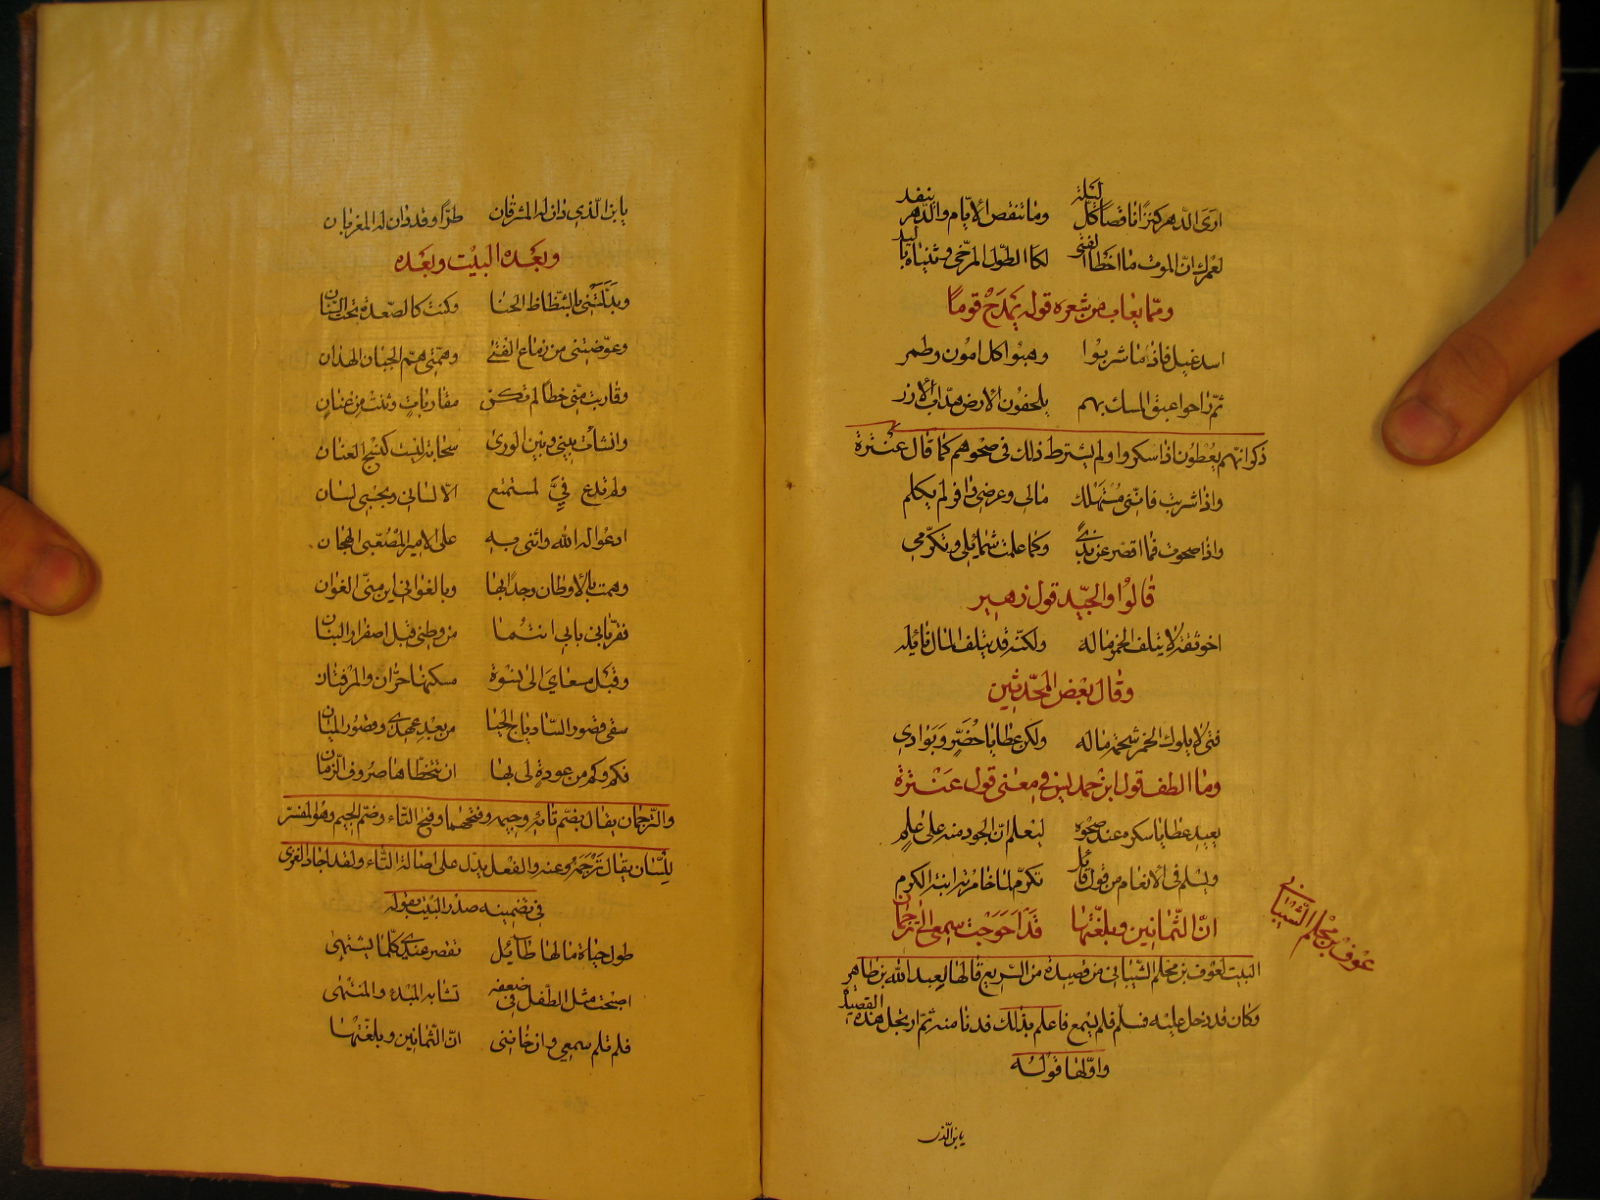 ارى الدهر كنزا ناقصا كل ليلة وما تنقص الايام والدهر ينفد
لعمرك ان الموت ما اخطا الفتى لكا الطول المرخى وثنياه باليد
ومما يعاب من شعره قوله يمدح قوما
اسد غيل فاذا ما شربوا وهبوا كل امون وطمر
ثم راحوا عبق المسك بهم يلحفون الارض هداب الازر
ذكر انهم يعطون اذا سكروا ولم يشترط ذلك فى صحوهم كما قال عنترة
واذا شربت فاننى مستهلك مالى وعرضى وافر لم يكلم
واذا صحوت فما اقصر عن ندى وكما علمت شمائلى وتكرمى
قالوا والجيد قول زهير
اخو ثقة لا يتلف الخمر ماله ولكنه قد يتلف المال نائله
وقال بعض المحدثين
فتى لا يلوك الخمر شحمة ماله ولكن عطايا خضر وبوادى
وما الطف قول ابن حمديس فى معنى قول عنترة
يعيد عطايا سكره عند صحوه ليعلم ان الجود منه على علم
ويسلم فى الانعام من قول قائل تكرم لما خامرته ابنة الكرم
ان الثمانين وبلغتها قد احوجت سمعى الى ترجمان
عوف بن محلم الشيبانى
البيت لعوف بن محلم الشيبانى من قصيدة من السريع قالها لعبد الله بن طاهر
وكان قد دخل عليه فسلم فلم يسمع فاعلم بذلك فدنا منه ثم ارتجل هذه القصيدة
واولها قوله
يابن الذى
يابن الذى دان له المشرقان طرا وقد دان له المغربان
وبعده البيت وبعده
وبدلتنى بالشطاط الحنا وكنت كالصعدة تحت السنان
وعوضتنى من زماع الفتى وهمتى هم الجبان الهدان
وقاربت منى خطا لم تكن مقاربات وثنت من عنان
وانشات بينى وبين الورى سحابة ليست كنسج العنان
ولم تدع فى لمستمتع الا لسانى وبحسبى لسان
ادعو به الله واثنى به على الامير المصعبى الهجان
وهمت بالاوطان وجدا بها وبالغوانى اين منى الغوان
فقربانى بابى انتما من وطنى قبل اصفرار البنان
وقبل منعاى الى نسوة مسكنها حران والرقتان
سقى قصور الشاذياخ الحيا من بعد عهدى وقصور الميان
فكم وكم من عودة لى بها ان تتخطاها صروف الزمان
والترجمان يقال بضم تائه وجيمه وفتحهما وفتح التاء وضم الجيم وهو المفسر
للسان يقال ترجمه وعنه والفعل يدل على اصالة التاء ولقد اجاد الغزى
فى تضمينه صدر البيت بقوله
طول حياة ما لها طائل تقصر عندى كلما يشتهى
اصبحت مثل الطفل فى ضعفه تشابه المبدء والمنتهى
فلم تلم سمعى وان خاننى ان الثمانين وبلغتها